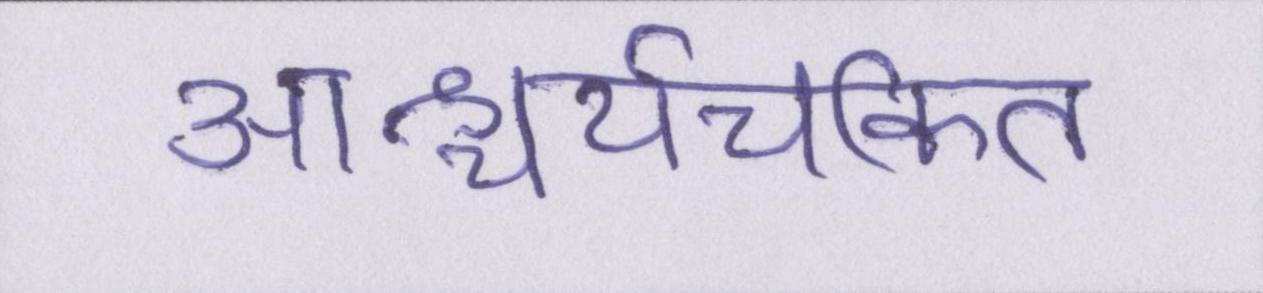 आश्चर्यचकित